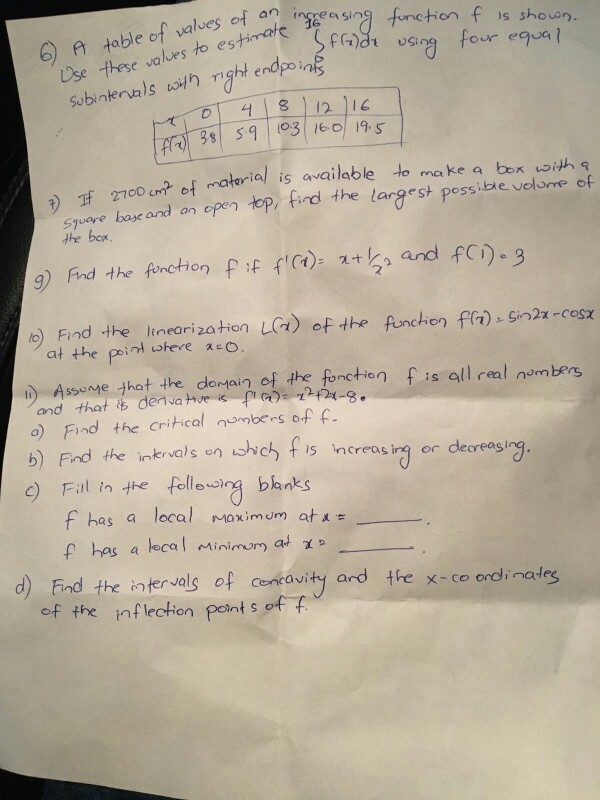 6) A table of values of an increasing function f is shown.
Use these values to estimate ∫₀¹⁶ f(x)dx using four equal
subintervals with right endpoints
x 0 4 8 12 16
f(x) 38 5.9 10.3 16.0 19.5
7) If 2700 cm² of material is available to make a box with a
square base and an open top, find the largest possible volume of
the box.
9) Find the function f if f'(x) = x+1/x² and f(1) = 3
10) Find the linearization L(x) of the function f(x) = sin2x-cosx
at the point where x=0.
11) Assume that the domain of the function f is all real numbers
and that its derivative is f'(x) = x²+2x-8.
a) Find the critical numbers of f.
b) Find the intervals on which f is increasing or decreasing.
c) Fill in the following blanks
f has a local maximum at x = ______.
f has a local minimum at x = ______.
d) Find the intervals of concavity and the x-coordinates
of the inflection points of f.